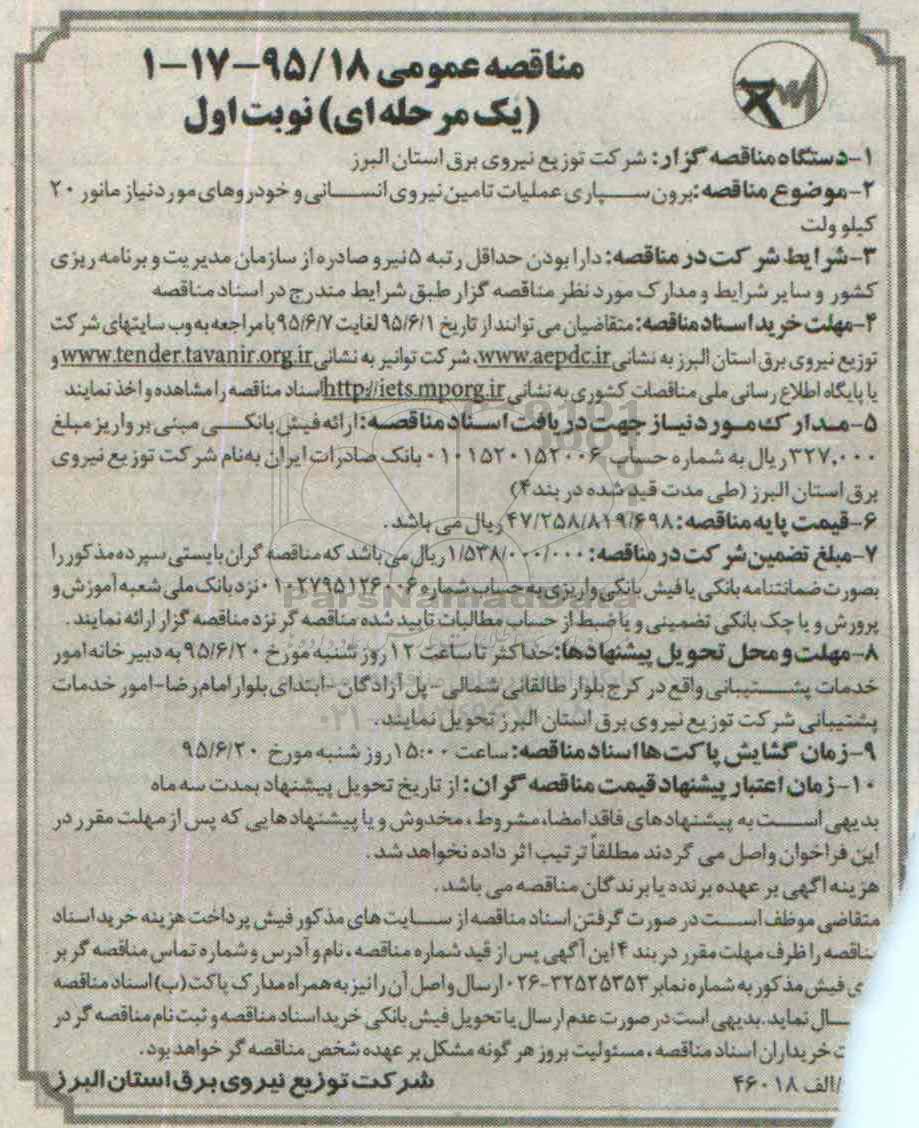 مناقصه عمومی ۹۵/۱۸-۱۷-۱
(یک مرحله ای) نوبت اول
۱-دستگاه مناقصه گزار: شرکت توزیع نیروی برق استان البرز
۲-موضوع مناقصه: برون سپاری عملیات تامین نیروی انسانی و خودروهای مورد نیاز مانور ۲۰
کیلو ولت
۳-شرایط شرکت در مناقصه: دارا بودن حداقل رتبه ۵ نیرو صادره از سازمان مدیریت و برنامه ریزی
کشور و سایر شرایط و مدارک مورد نظر مناقصه گزار طبق شرایط مندرج در اسناد مناقصه
۴-مهلت خرید اسناد مناقصه: متقاضیان می توانند از تاریخ ۹۵/۶/۱ لغایت ۹۵/۶/۷ با مراجعه به وب سایتهای شرکت
توزیع نیروی برق استان البرز به نشانی www.aepdc.ir، شرکت توانیر به نشانی www.tender.tavanir.org.ir و
یا پایگاه اطلاع رسانی ملی مناقصات کشوری به نشانی http://iets.mporg.ir اسناد مناقصه را مشاهده و اخذ نمایند
۵-مدارک مورد نیاز جهت دریافت اسناد مناقصه: ارائه فیش بانکی مبنی بر واریز مبلغ
۳۲۷,۰۰۰ ریال به شماره حساب ۰۱۰۱۵۲۰۱۵۲۰۰۶ بانک صادرات ایران به نام شرکت توزیع نیروی
برق استان البرز (طی مدت قید شده در بند ۴)
۶-قیمت پایه مناقصه: ۴۷/۲۵۸/۸۱۹/۶۹۸ ریال می باشد.
۷-مبلغ تضمین شرکت در مناقصه: ۱/۵۳۸/۰۰۰/۰۰۰ ریال می باشد که مناقصه گران بایستی سپرده مذکور را
بصورت ضمانتنامه بانکی یا فیش بانکی واریزی به حساب شماره ۰۱۰۲۷۹۵۱۲۶۰۰۶ نزد بانک ملی شعبه آموزش و
پرورش و یا چک بانکی تضمینی و یا ضبط از حساب مطالبات تایید شده مناقصه گر نزد مناقصه گزار ارائه نمایند.
۸-مهلت و محل تحویل پیشنهادها: حداکثر تا ساعت ۱۲ روز شنبه مورخ ۹۵/۶/۲۰ به دبیرخانه امور
خدمات پشتیبانی واقع در کرج بلوار طالقانی شمالی - پل آزادگان - ابتدای بلوار امام رضا - امور خدمات
پشتیبانی شرکت توزیع نیروی برق استان البرز تحویل نمایند.
۹-زمان گشایش پاکت ها اسناد مناقصه: ساعت ۱۵:۰۰ روز شنبه مورخ ۹۵/۶/۲۰
۱۰-زمان اعتبار پیشنهاد قیمت مناقصه گران: از تاریخ تحویل پیشنهاد بمدت سه ماه
بدیهی است به پیشنهادهای فاقد امضا، مشروط، مخدوش و یا پیشنهادهایی که پس از مهلت مقرر در
این فراخوان واصل می گردند مطلقاً ترتیب اثر داده نخواهد شد.
هزینه اگهی بر عهده برنده یا برندگان مناقصه می باشد.
متقاضی موظف است در صورت گرفتن اسناد مناقصه از سایت های مذکور فیش پرداخت هزینه خرید اسناد
مناقصه را ظرف مهلت مقرر در بند ۴ این آگهی پس از قید شماره مناقصه، نام و آدرس و شماره تماس مناقصه گر بر
فیش مذکور به شماره نمابر ۳۲۵۲۵۳۵۳-۰۲۶ ارسال و اصل آن را نیز به همراه مدارک پاکت (ب) اسناد مناقصه
نماید. بدیهی است در صورت عدم ارسال یا تحویل فیش بانکی خرید اسناد مناقصه و ثبت نام مناقصه گر در
خریداران اسناد مناقصه، مسئولیت بروز هر گونه مشکل بر عهده شخص مناقصه گر خواهد بود.
/الف ۴۶۰۱۸ شرکت توزیع نیروی برق استان البرز
ParsNamadData